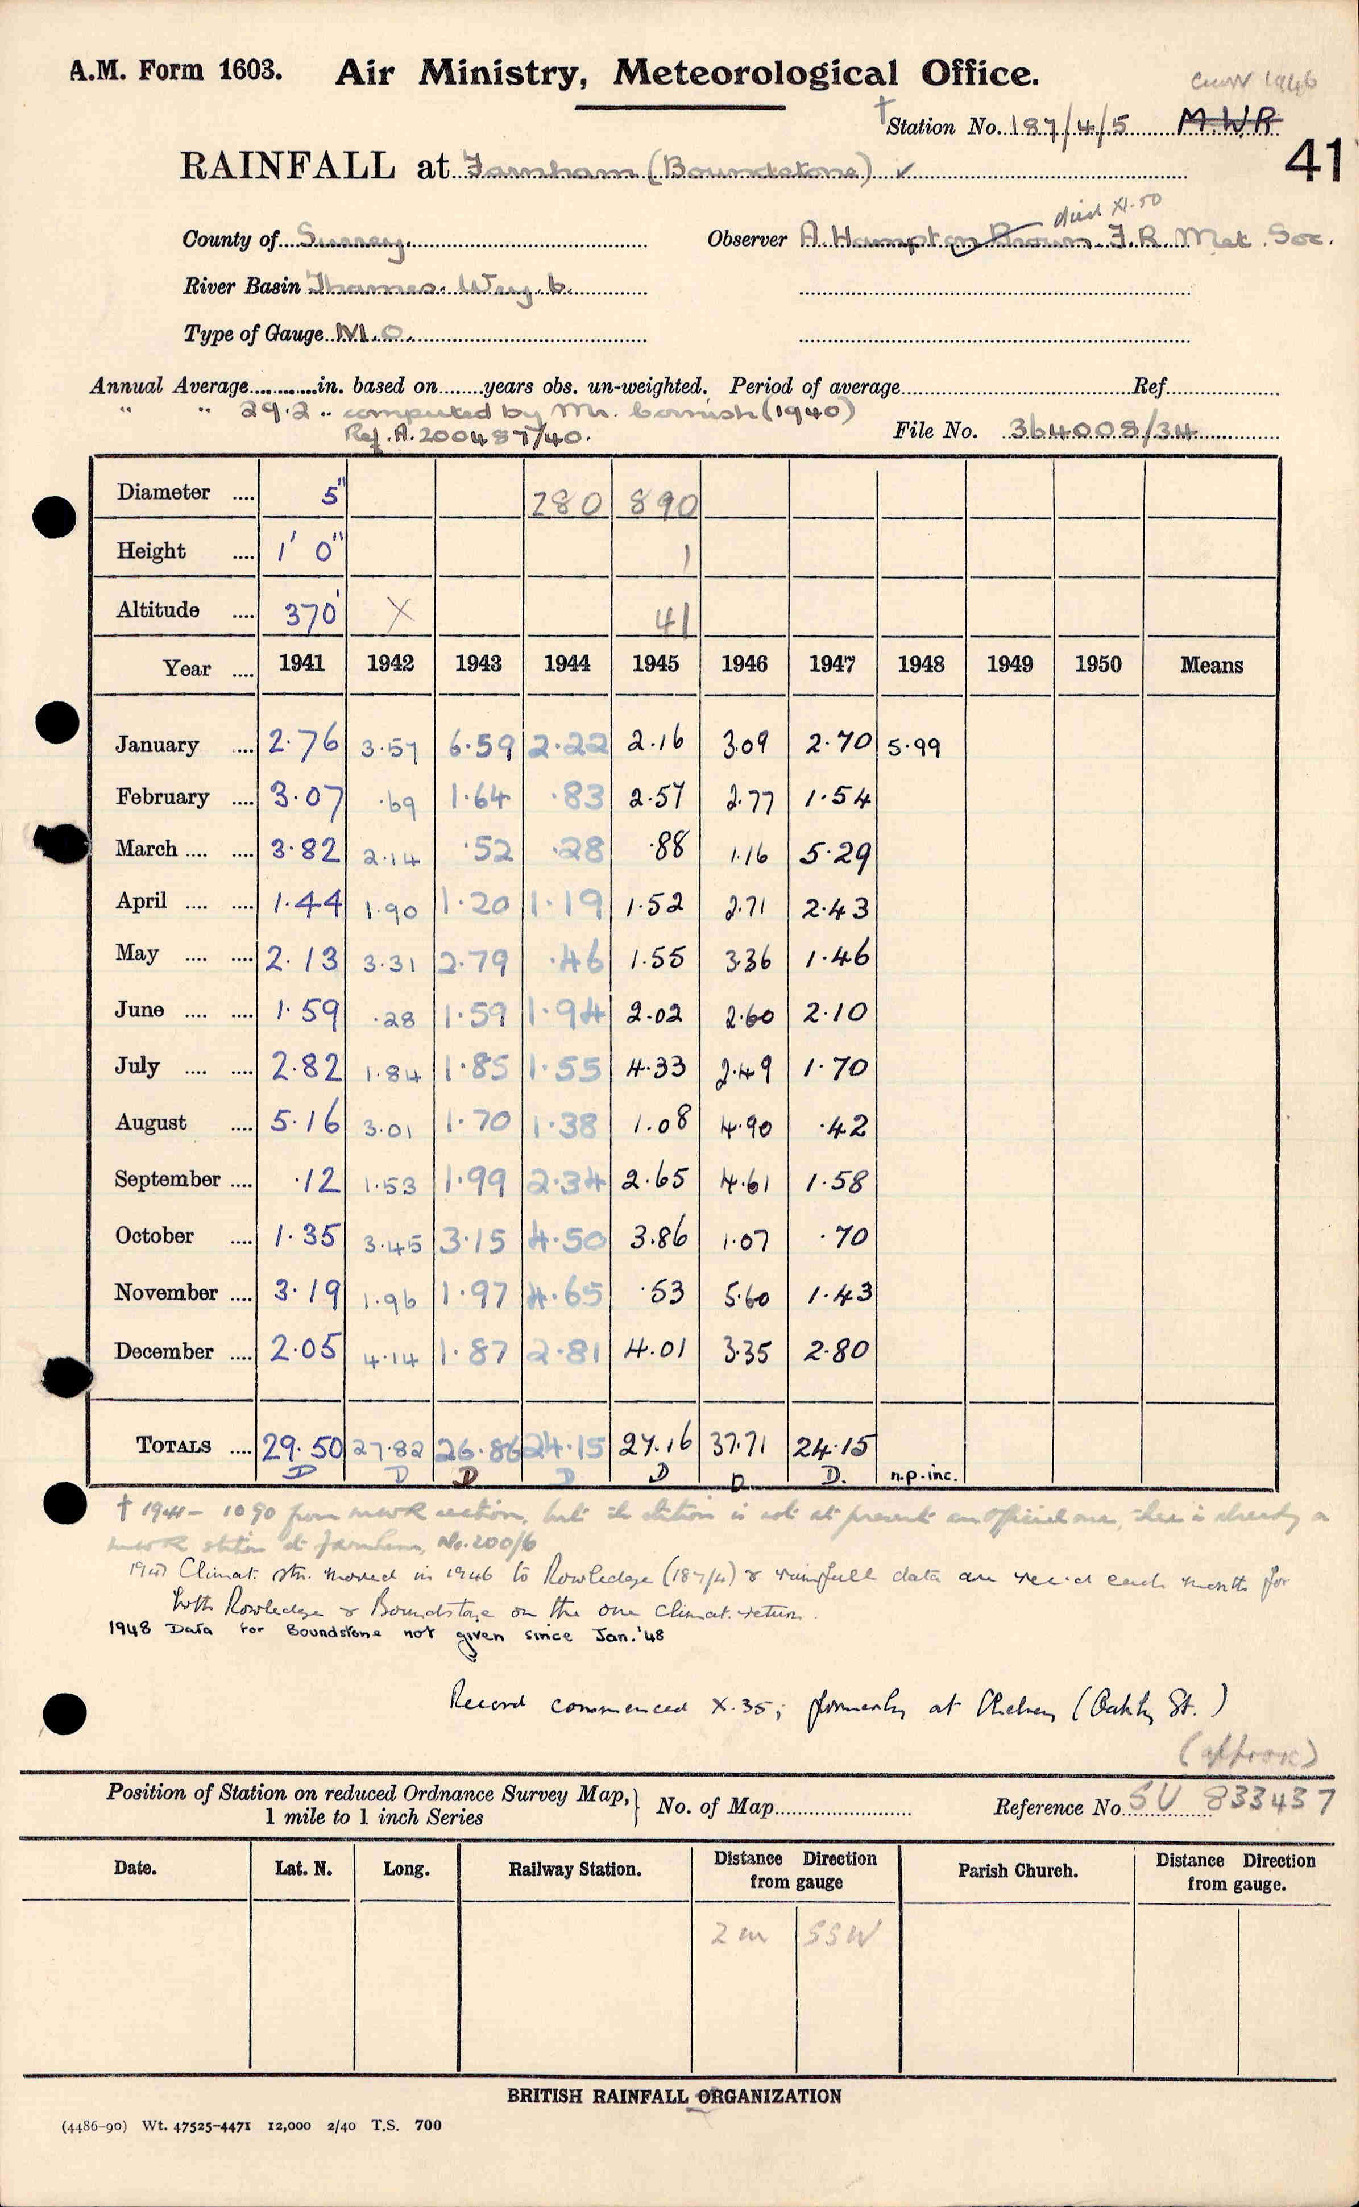 A.M. Form 1603. Air Ministry, Meteorological Office. 1946
† Station No. 187/4/5 M.W.R
41
RAINFALL at Farnham (Boundstone) ✓
died XI.50
County of Surrey. Observer A. Hampton Brown. F.R. Met. Soc.
River Basin Thames. Wey. b.
Type of Gauge M.O.
Annual Average............in. based on.......years obs. un-weighted. Period of average............Ref............
" " 29.2 .. computed by Mr. Cornish (1940)
Ref. A.200487/40. File No. 364008/34
Diameter .... 5" 280 890
Height .... 1' 0" 1
Altitude .... 370' X 41
Year .... 1941 1942 1943 1944 1945 1946 1947 1948 1949 1950 Means
January .... 2.76 3.57 6.59 2.22 2.16 3.09 2.70 5.99
February .... 3.07 .69 1.64 .83 2.57 2.77 1.54
March .... .... 3.82 2.14 .52 .28 .88 1.16 5.29
April .... .... 1.44 1.90 1.20 1.19 1.52 2.71 2.43
May .... .... 2.13 3.31 2.79 .46 1.55 3.36 1.46
June .... .... 1.59 .28 1.59 1.94 2.02 2.60 2.10
July .... .... 2.82 1.84 1.85 1.55 4.33 2.49 1.70
August .... 5.16 3.01 1.70 1.38 1.08 4.90 .42
September .... .12 1.53 1.99 2.34 2.65 4.61 1.58
October .... 1.35 3.45 3.15 4.50 3.86 1.07 .70
November .... 3.19 1.96 1.97 4.65 .53 5.60 1.43
December .... 2.05 4.14 1.87 2.81 4.01 3.35 2.80
TOTALS .... 29.50 27.82 26.86 24.15 27.16 37.71 24.15
D D D D D D D. n.p.inc.
† 1941 - 1090 from MWR section, but the station is not at present an official one, there is already a
MWR station at Farnham, No. 200/6
1947 Climat. stn. moved in 1946 to Rowledge (187/4) & rainfall data are rec'd each month for
both Rowledge & Boundstone on the one climat. return.
1948 Data for Boundstone not given since Jan. '48
Record commenced X.35; formerly at Chelsea (Oakley St.)
(approx)
Position of Station on reduced Ordnance Survey Map, 1 mile to 1 inch Series } No. of Map............ Reference No. SU 833437
Date. Lat. N. Long. Railway Station. Distance Direction from gauge Parish Church. Distance Direction from gauge.
2 m SSW
BRITISH RAINFALL ORGANIZATION
(4486-90) Wt. 47525-4471 12,000 2/40 T.S. 700